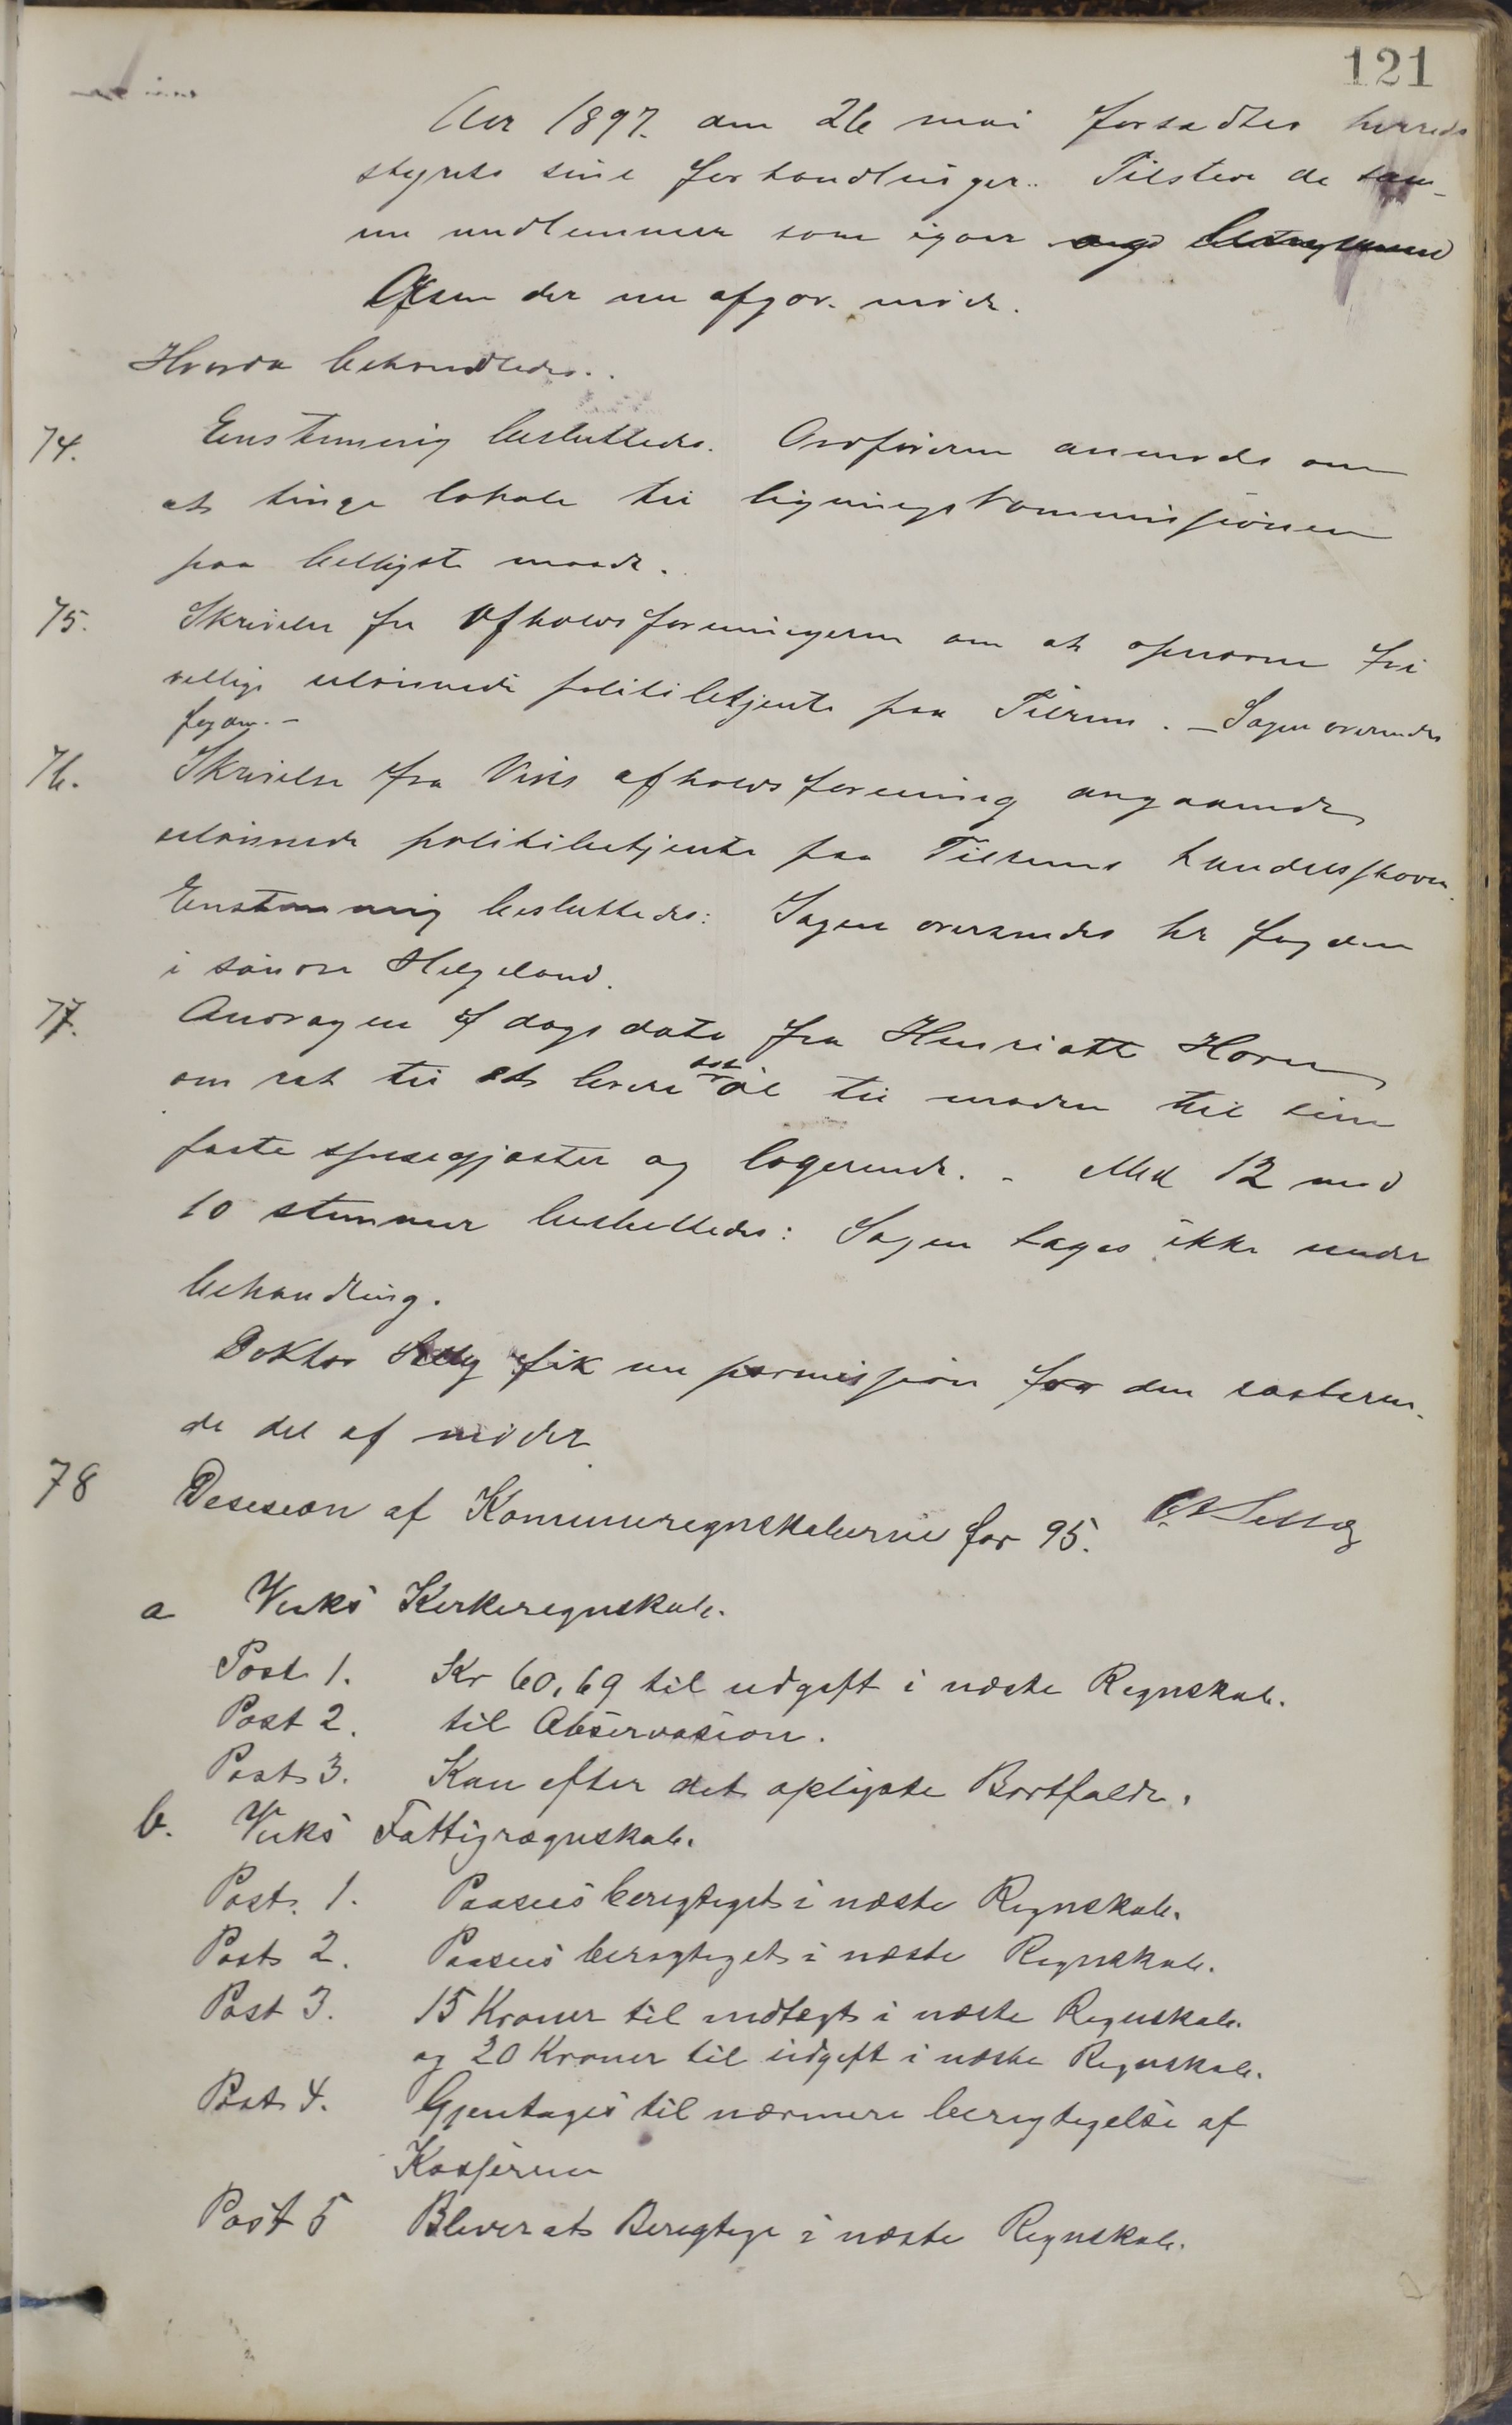 121
Aar 1897. den 26 mai fortsattes herreds
styrets sine forhandlinger. Tilstede de sam-
me medlemmer som igaar
Olsen der nu afgav. møde.
Hvorda behandledes.
74. Enstemmig besluttedes. Ordføreren anmodes om
at tinge lokale til ligningskommissionen
paa belligste maade.
75. Skrivelse fra Afholdsforeningerne om at opnevne fri
villige ulønnede politibetjente paa Tilrem. - Sagen oversendes
fogden. -
76. Skrivelse fra Viks afholdsforening angaaende
ulønnede politibetjente paa Tilrems handelsplads.
Enstemmig besluttedes: Sagen oversendes hr fogden
i søndre Helgeland.
77. Andragende af dags dato fra Henriette Horn
om ret til at levere øl til maden til sine
faste spisegjæster og logerende. - Med 12 mod
10 stemmer besluttedes: Sagen tages ikke under
behandling.
Doktor Selly fik nu permission for den resteren-
de del af mødet.
78 Desesion af Kommuneregnskaberne for 95.
a Viks Kirkeregnskab.
Post 1. Kr 60,69 til udgift i næste Regnskab.
Post 2. til Observasion.
Post 3. Kan efter det oplyste Bortfalde.
b. Viks Fattigrægnskab.
Post. 1. Paasees berigtiget i næste Regnskab.
Post 2. Paasees berigtiget i næste Regnskab.
Post 3. 15 Kroner til indtægt i næste Regnskab.
og 20 Kroner til udgift i næste Regnskab.
Post 4. Gjentages til nærmere berigtigelse af
Kassereren
Post 5 Bliver at Berigtige i næste Regnskab.